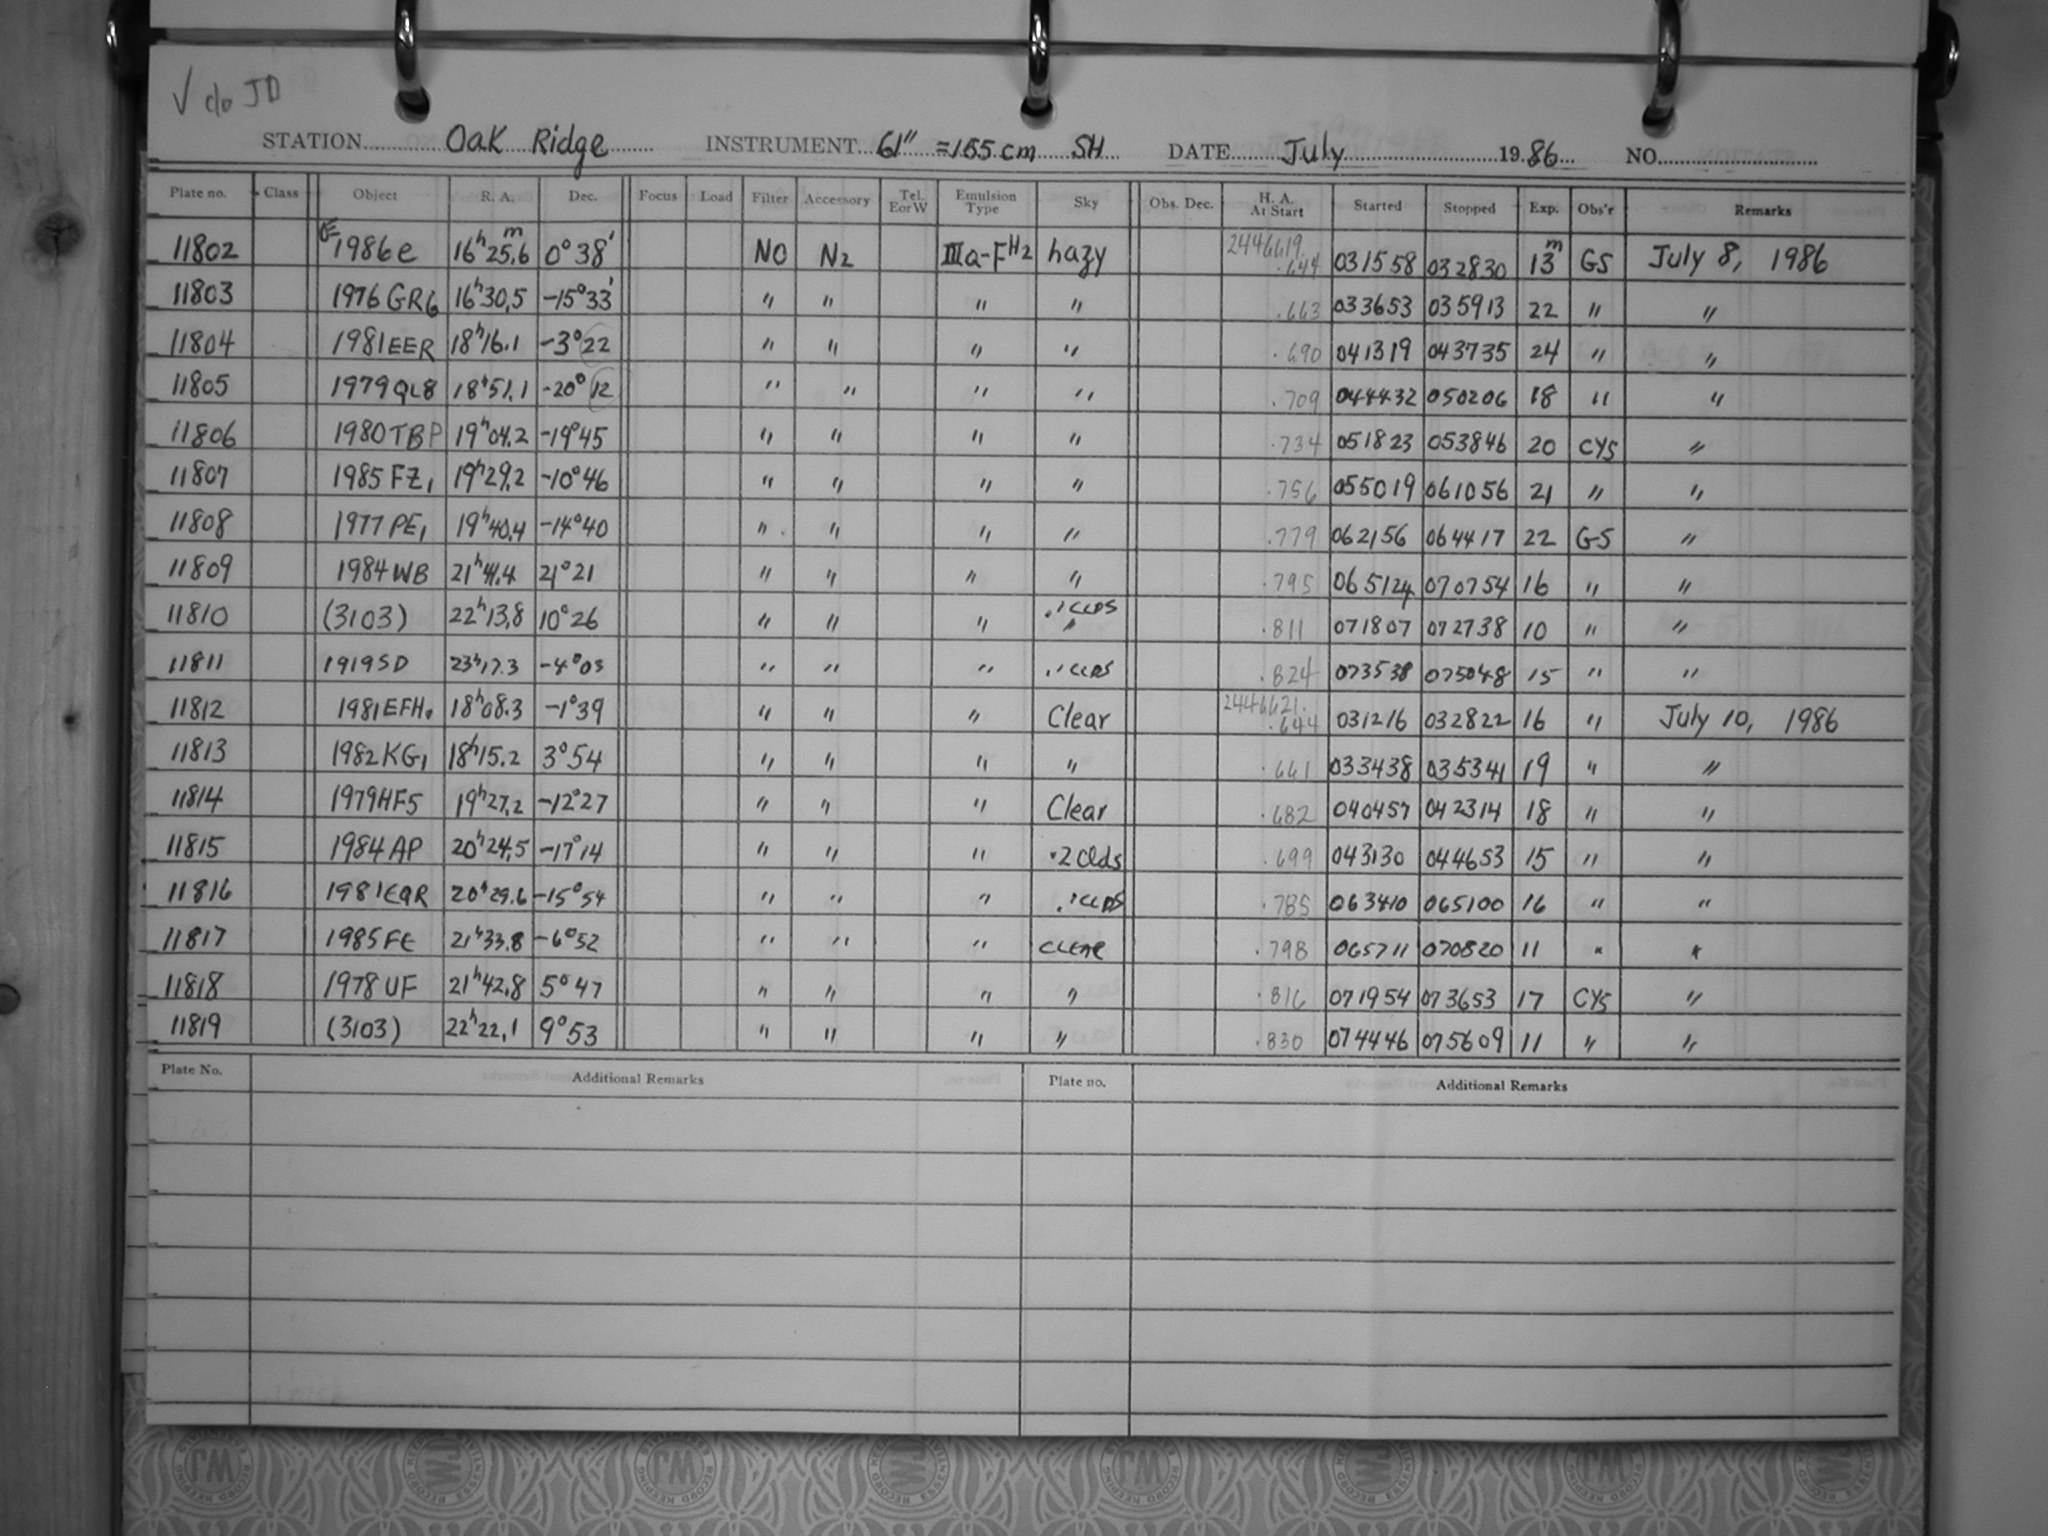 √ do JD
STATION Oak Ridge INSTRUMENT 61" = 155 cm SH DATE July 1986 NO.
Plate no. Class Object R. A. Dec. Focus Load Filter Accessory Tel. E or W Emulsion Type Sky Obs. Dec. H. A. At Start Started Stopped Exp. Obs'r Remarks
11802 1986e 16h25.6m 0°38' NO N2 IIIa-FH2 hazy 2446619. .644 031558 032830 13m GS July 8, 1986
11803 1976GR6 16h30.5 -15°33' " " " " .663 033653 035913 22 " "
11804 1981EER 18h16.1 -3°22 " " " " .690 041319 043735 24 " "
11805 1979QL8 18h51.1 -20°12 " " " " .709 044432 050206 18 " "
11806 1980TBP 19h04.2 -19°45 " " " " .734 051823 053846 20 CYS "
11807 1985FZ1 19h29.2 -10°46 " " " " .756 055019 061056 21 " "
11808 1977PE1 19h40.4 -14°40 " " " " .779 062156 064417 22 GS "
11809 1984WB 21h41.4 21°21 " " " " .795 065124 070754 16 " "
11810 (3103) 22h13.8 10°26 " " " .1CLDS " .811 071807 072738 10 " "
11811 1919SD 23h17.3 -4°03 " " " .1CLDS .824 073538 075048 15 " "
11812 1981EFH. 18h08.3 -1°39 " " " Clear 2446621. .644 031216 032822 16 " July 10, 1986
11813 1982KG1 18h15.2 3°54 " " " " .661 033438 035341 19 " "
11814 1979HF5 19h27.2 -12°27 " " " Clear .682 040457 042314 18 " "
11815 1984AP 20h24.5 -17°14 " " " .2 Clds .699 043130 044653 15 " "
11816 1981EQR 20h29.6 -15°54 " " " .1CLDS .785 063410 065100 16 " "
11817 1985FE 21h33.8 -6°52 " " " CLEAR .798 065711 070820 11 " "
11818 1978UF 21h42.8 5°47 " " " " .816 071954 073653 17 CYS "
11819 (3103) 22h22.1 9°53 " " " " .830 074446 075609 11 " "
Plate No. Additional Remarks Plate no. Additional Remarks